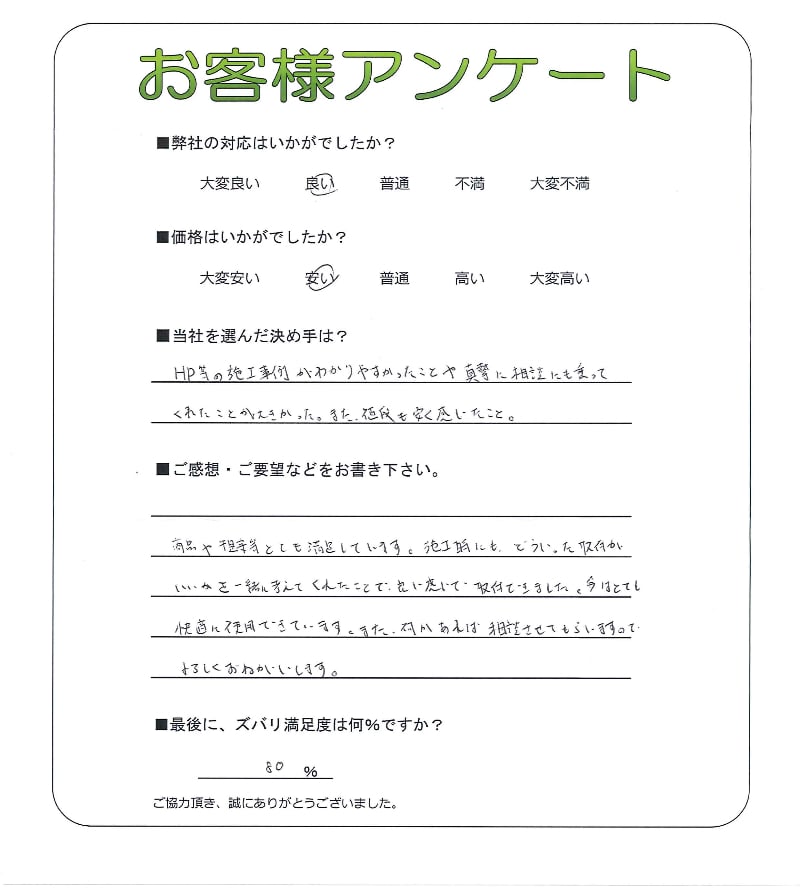 お客様アンケート
■弊社の対応はいかがでしたか？
大変良い 良い 普通 不満 大変不満
■価格はいかがでしたか？
大変安い 安い 普通 高い 大変高い
■当社を選んだ決め手は？
HP等の施工事例がわかりやすかったことや真摯に相談にも乗って
くれたことが大きかった。また、値段も安く感じたこと。
■ご感想・ご要望などをお書き下さい。
商品や 等とても満足しています。施工時にも、どういった取付が
いいかを一緒に考えてくれたことで、良い感じで取付できました。今はとても
快適に使用できています。また、何かあれば相談させてもらいますので
よろしくおねがいします。
■最後に、ズバリ満足度は何％ですか？
80 ％
ご協力頂き、誠にありがとうございました。